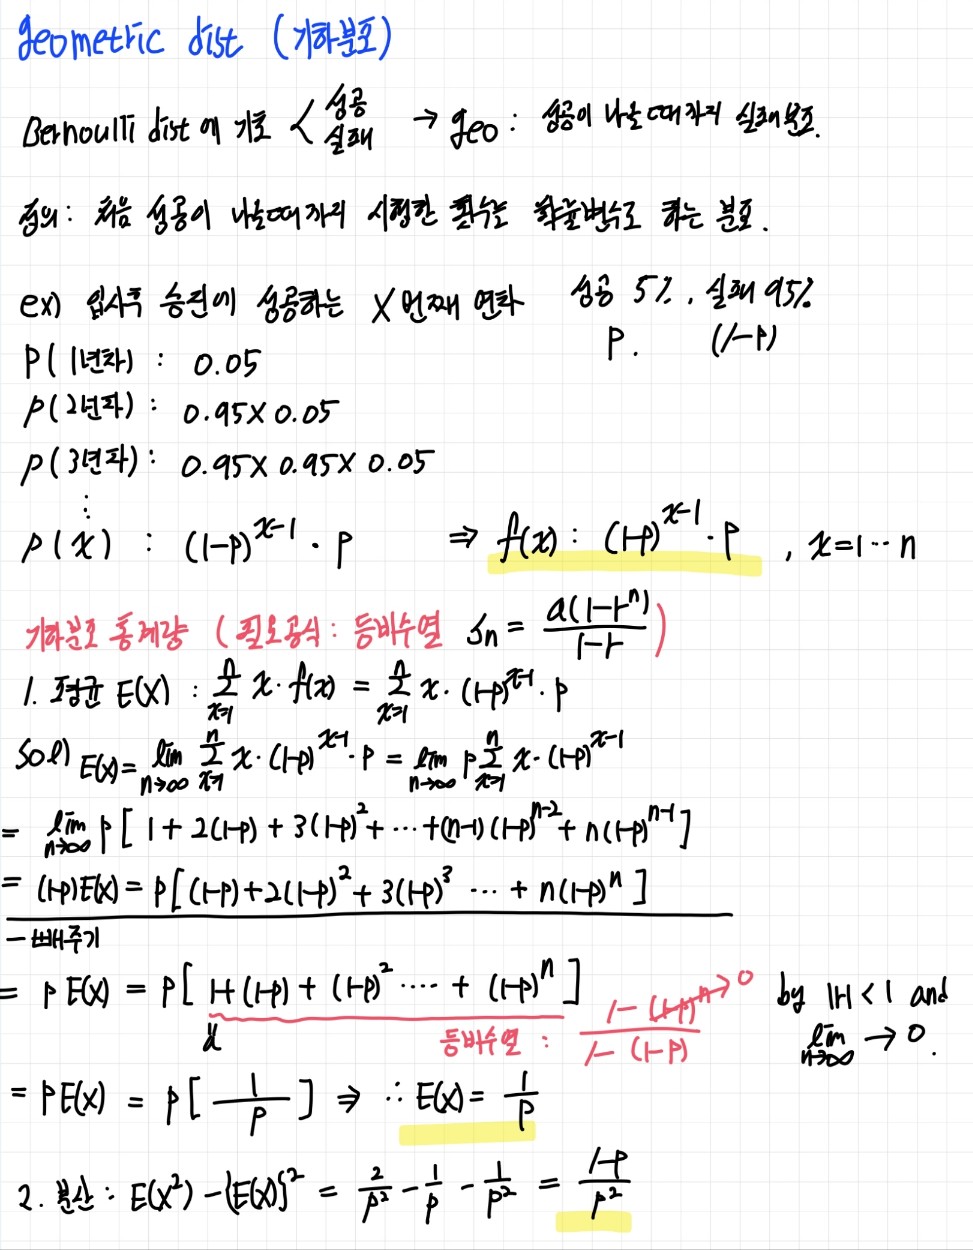 geometric dist (기하분포)
Bernoulli dist에 기초 < 성공 실패 → geo : 성공이 나올때까지 실패분포.
정의: 처음 성공이 나올때까지 시행한 횟수는 확률변수로 하는 분포.
ex) 입사후 승진에 성공하는 X번째 연차 성공 5%, 실패 95%
P. (1-P)
P(1년차) : 0.05
P(2년차) : 0.95 X 0.05
P(3년차) : 0.95 X 0.95 X 0.05
⋮
P(x) : (1-P)^{x-1} · P ⇒ f(x) : (1-P)^{x-1} · P , x=1 ··· n
기하분포 통계량 (필요공식: 등비수열 S_n = \frac{a(1-r^n)}{1-r})
1. 평균 E(X) : \sum_{x=1}^{n} x · f(x) = \sum_{x=1}^{n} x · (1-P)^{x-1} · P
Sol) E(x) = \lim_{n→∞} \sum_{x=1}^{n} x · (1-P)^{x-1} · P = \lim_{n→∞} P \sum_{x=1}^{n} x · (1-P)^{x-1}
= \lim_{n→∞} P [ 1 + 2(1-P) + 3(1-P)^2 + ··· + (n-1)(1-P)^{n-2} + n(1-P)^{n-1} ]
= (1-P)E(x) = P [ (1-P) + 2(1-P)^2 + 3(1-P)^3 ··· + n(1-P)^n ]
- 빼주기
= P E(x) = P [ 1 + (1-P) + (1-P)^2 ···· + (1-P)^n ] by |r| < 1 and
a 등비수열 : \frac{1-(1-P)^n → 0}{1-(1-P)} \lim_{n→∞} → 0.
= P E(x) = P [ \frac{1}{P} ] ⇒ ∴ E(x) = \frac{1}{P}
2. 분산 : E(X^2) - {E(X)}^2 = \frac{2}{P^2} - \frac{1}{P} - \frac{1}{P^2} = \frac{1-P}{P^2}